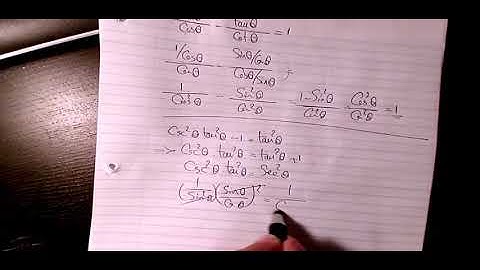 /Cosθ - tanθ/Cotθ = 1
1/Cosθ/Cosθ - Sinθ/Cosθ/Cosθ/Sinθ
1/Cos²θ - Sin²θ/Cos²θ = 1-Sin²θ/Cos²θ Cos²θ/Cos²θ = 1
Csc²θ tan²θ - 1 = tan²θ
=> Csc²θ tan²θ = tan²θ + 1
Csc²θ tan²θ = Sec²θ
(1/Sin²θ)(Sinθ/Cosθ)² = 1/C